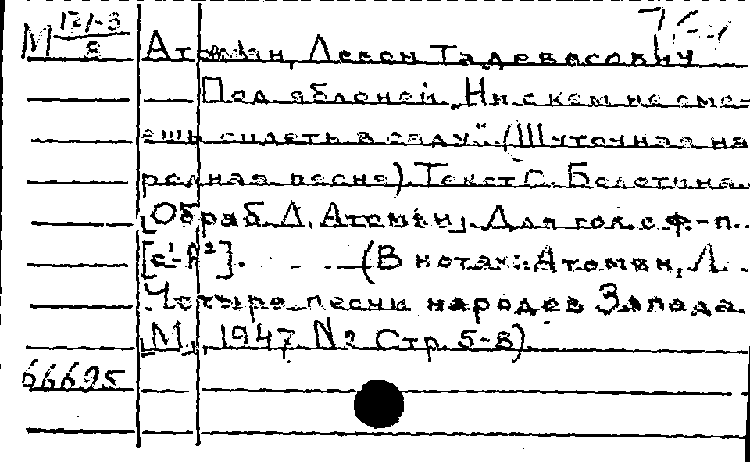 М 121-3/8
Атовмян, Левон Тадевосович
Под яблоней „Ни с кем не сме-
ешь сидеть в саду“. (Шуточная на
родная песня). Текст С. Болотина.
[Обраб. Л. Атовмян]. Для гол. с ф.-п.
[e¹-f²]. (В нотах: Атовмян, Л.
Четыре песни народов Запада.
[М], 1947. № 2 Стр. 5-8)
66695